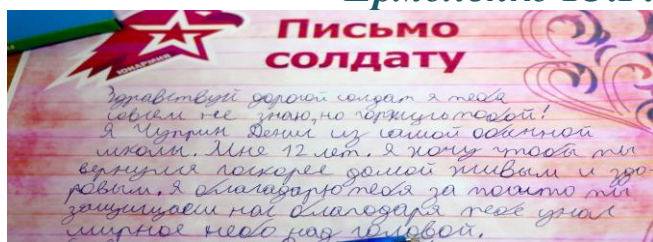 Ермоленко
ЮНАРМИЯ
Письмо
солдату
Здравствуй дорогой солдат я тебя
совсем не знаю, но горжусь тобой!
Я Чуприн Денис из самой обычной
школы. Мне 12 лет. Я хочу чтобы ты
вернулся поскорее домой живым и здо-
ровым. Я благадарю тебя за то что ты
защищаеш нас благодаря тебе
мирное небо над головой.